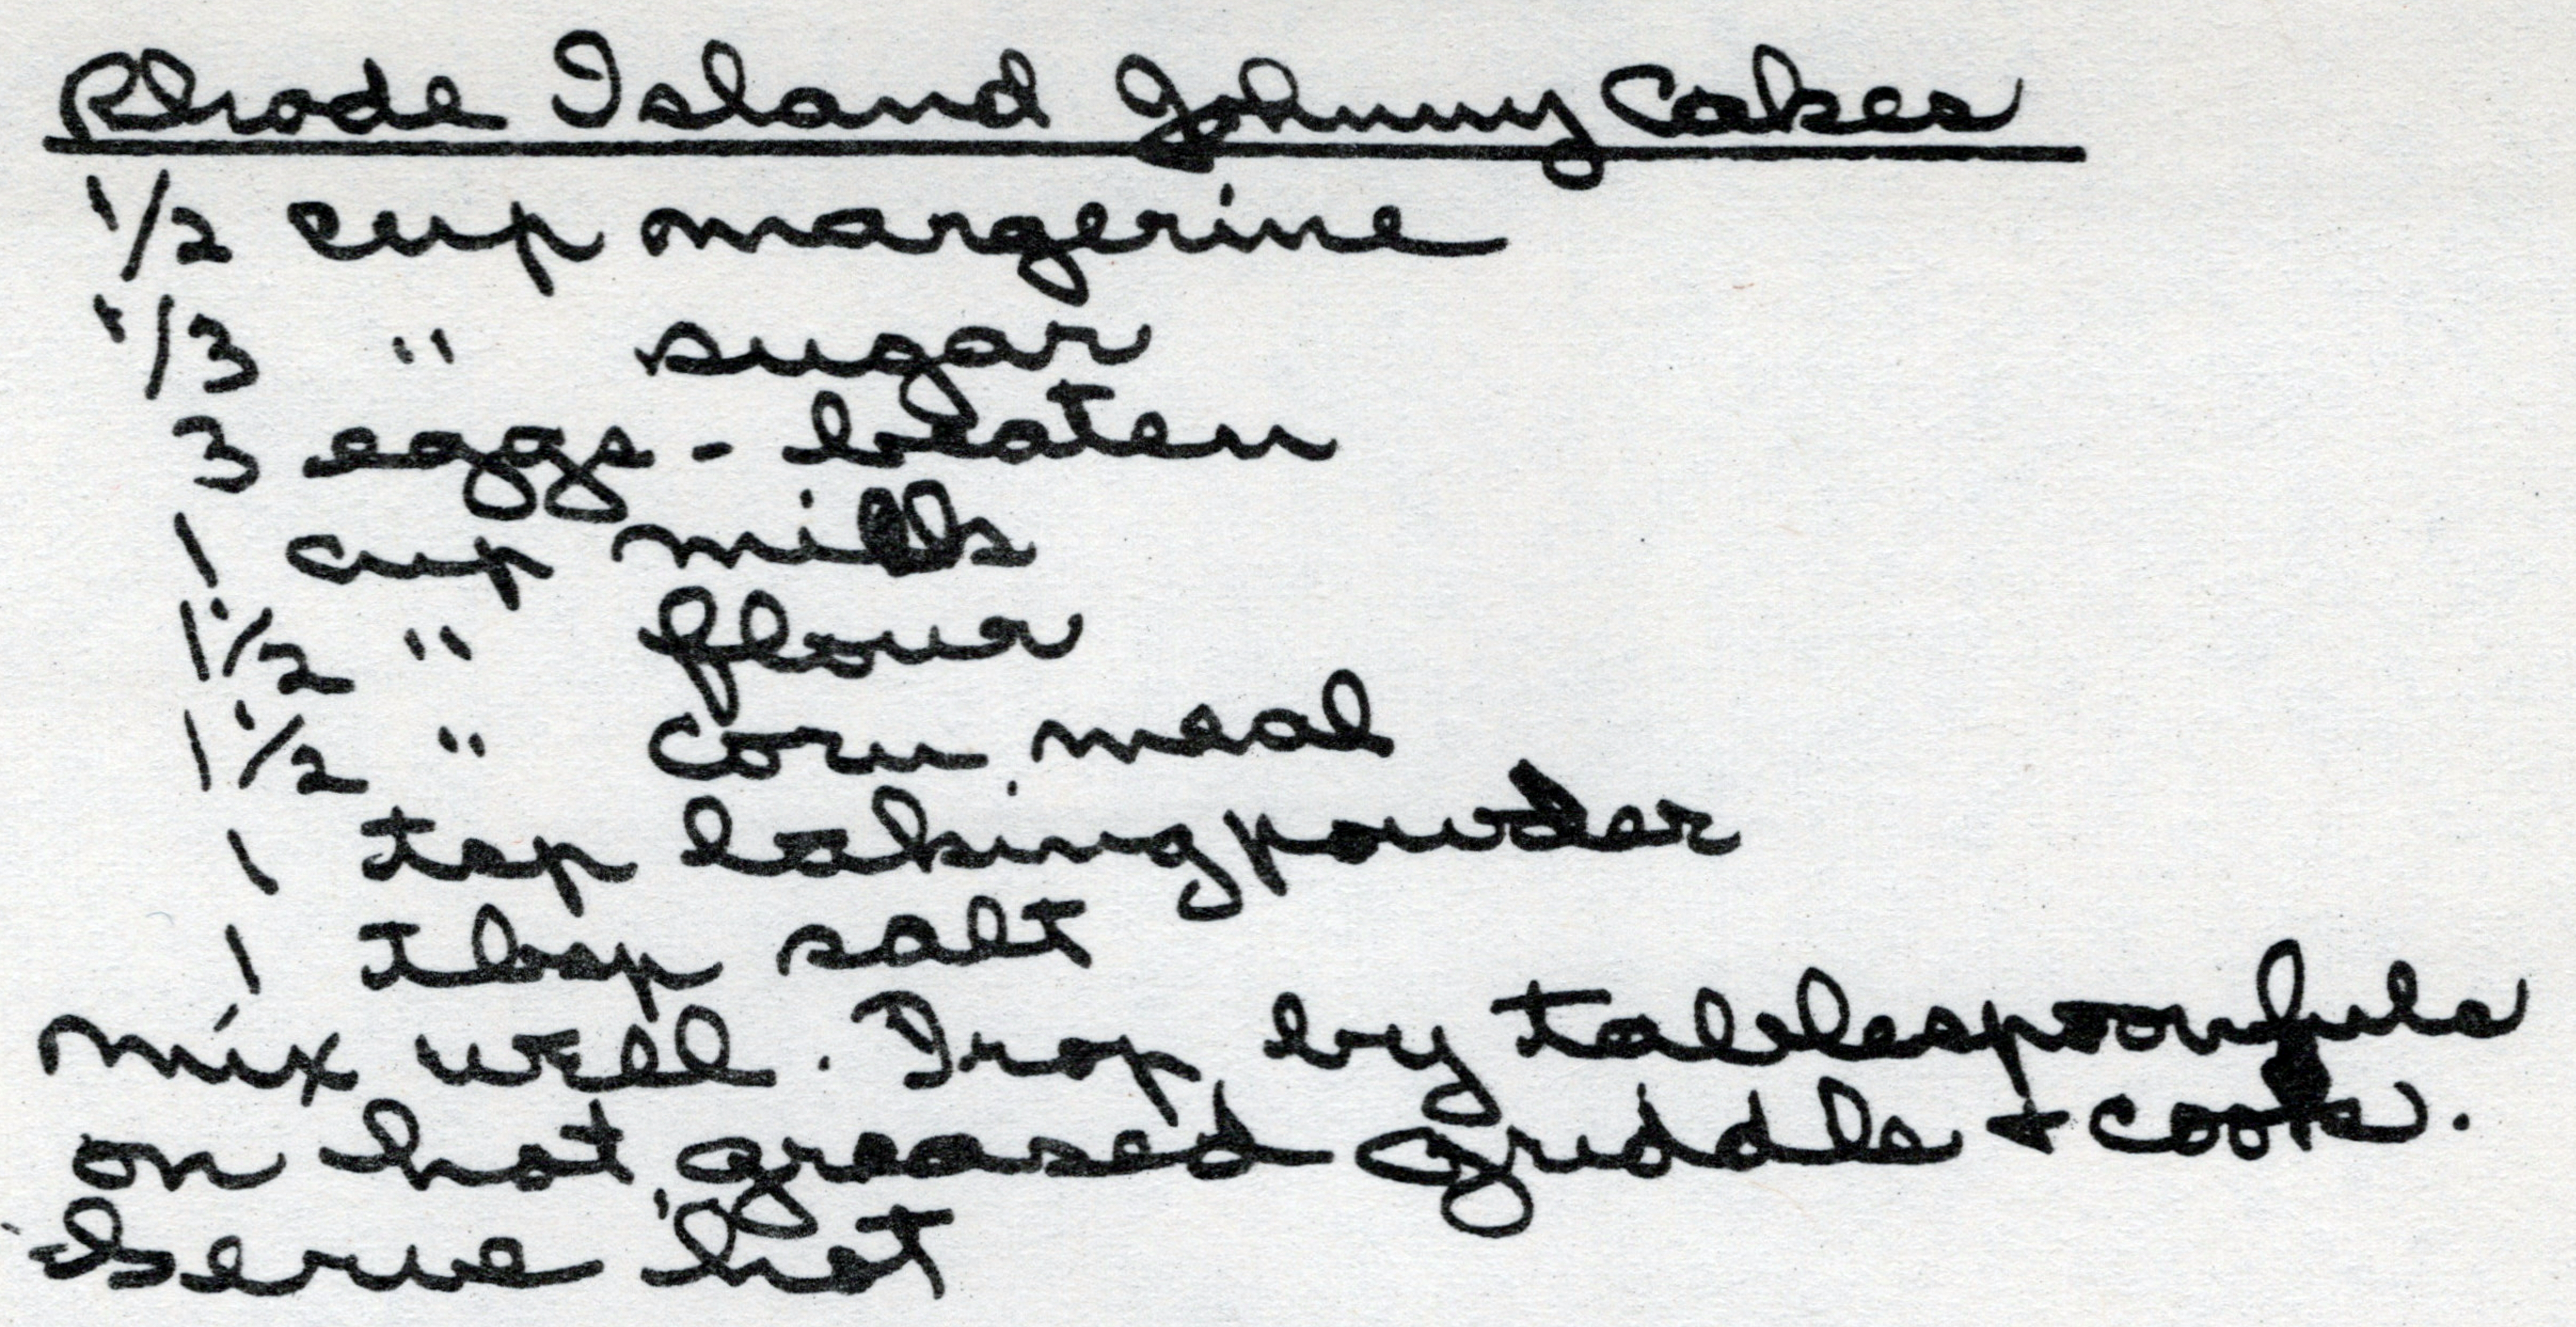 Rhode Island Johnny Cakes
1/2 cup margerine
1/3 " sugar
3 eggs - beaten
1 cup milk
1 1/2 " flour
1 1/2 " corn meal
1 tsp bakingpowder
1 tbsp salt
Mix well. Drop by tablespoonfuls
on hot greased griddle + cook.
Serve hot